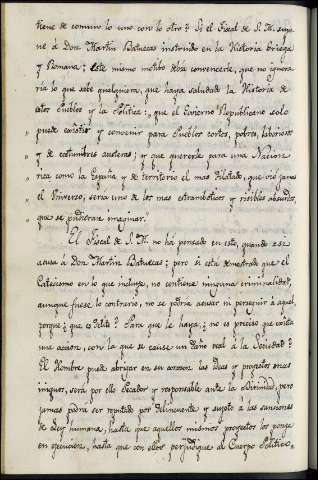 tiene de comun lo uno con lo otro? Si el Fiscal de S. M. supu-
ne á Don Martin Batuecas instruido en la Historia Griega
y Romana; este mismo motibo debia convencerle, que no ignora-
ria lo que sabe qualquiera, que haya saludado la Historia de
estos Pueblos y la Politica: „que el Govierno Republicano solo
„ puede existir y convenir para Pueblos cortos, pobres, laboriosos
„ y de costumbres austeras; y que quererle para una Nacion
„ rica como la España, y de territorio el mas dilatado, que vió jamas
„ el Universo, seria uno de los mas estramboticos y risibles absurdos,
„ que se pudieran imaginar.
El Fiscal de S. M. no há pensado en esto, quando asi
acusa á Don Martin Batuecas; pero si está demostrado que el
Catecismo en lo que incluye, no contiene ninguna criminalidad,
aunque fuese lo contrario, no se podria acusar ni perseguir á aquel,
porque ¿que es delito? Para que le haya, ¿no es preciso que exista
una accion, con la que se cause un daño real á la Sociedad?
El Hombre puede abrigar en su corazon las ideas y proyectos mas
iniquos, será por ello Pecador y responsable ante la Divinidad, pero
jamas podrá ser reputado por Delinquente y sujeto á las sanciones
de Ley humana, hasta que aquellos mismos proyectos los ponga
en egecucion, hasta que con ellos perjudique al Cuerpo Politico.